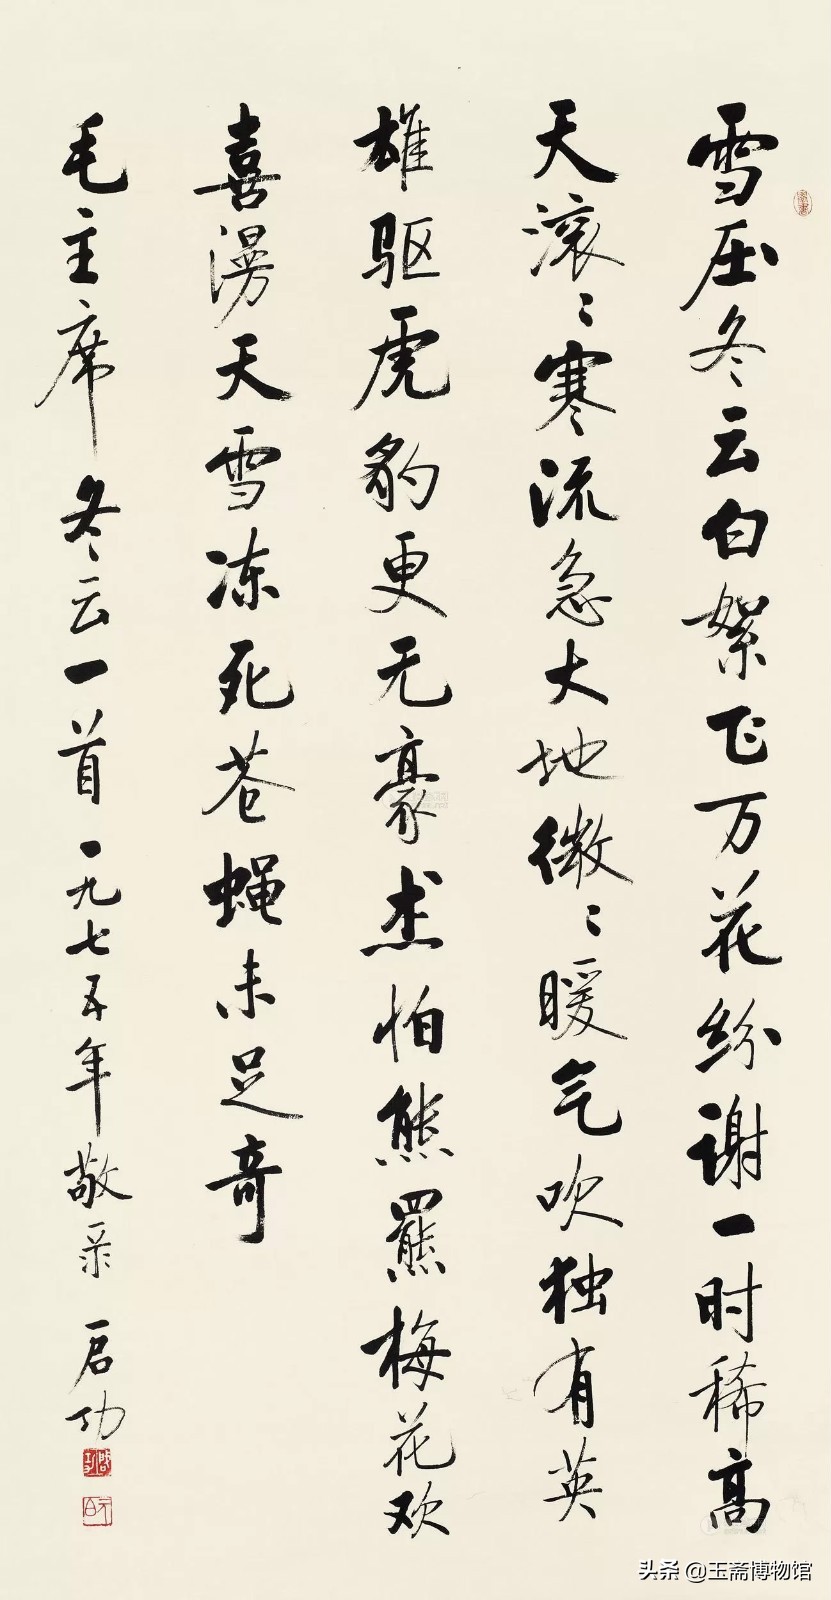 雪压冬云白絮飞万花纷谢一时稀高
天滚〻寒流急大地微〻暖气吹独有英
雄驱虎豹更无豪杰怕熊罴梅花欢
喜漫天雪冻死苍蝇未足奇
毛主席冬云一首一九七五年敬录 启功
头条 @玉斋博物馆